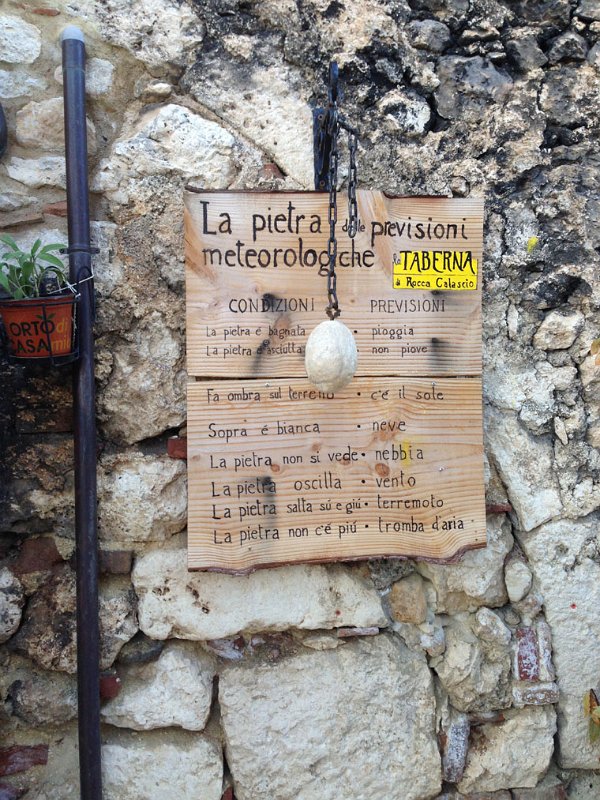 La pietra delle previsioni
meteorologiche
la TABERNA
di Rocca Calascio
CONDIZIONI PREVISIONI
La pietra é bagnata • pioggia
La pietra é asciutta • non piove
Fa ombra sul terreno • c'é il sole
Sopra é bianca • neve
La pietra non si vede • nebbia
La pietra oscilla • vento
La pietra salta sú e giú • terremoto
La pietra non c'é piú • tromba d'aria
ORTO di
CASA mia